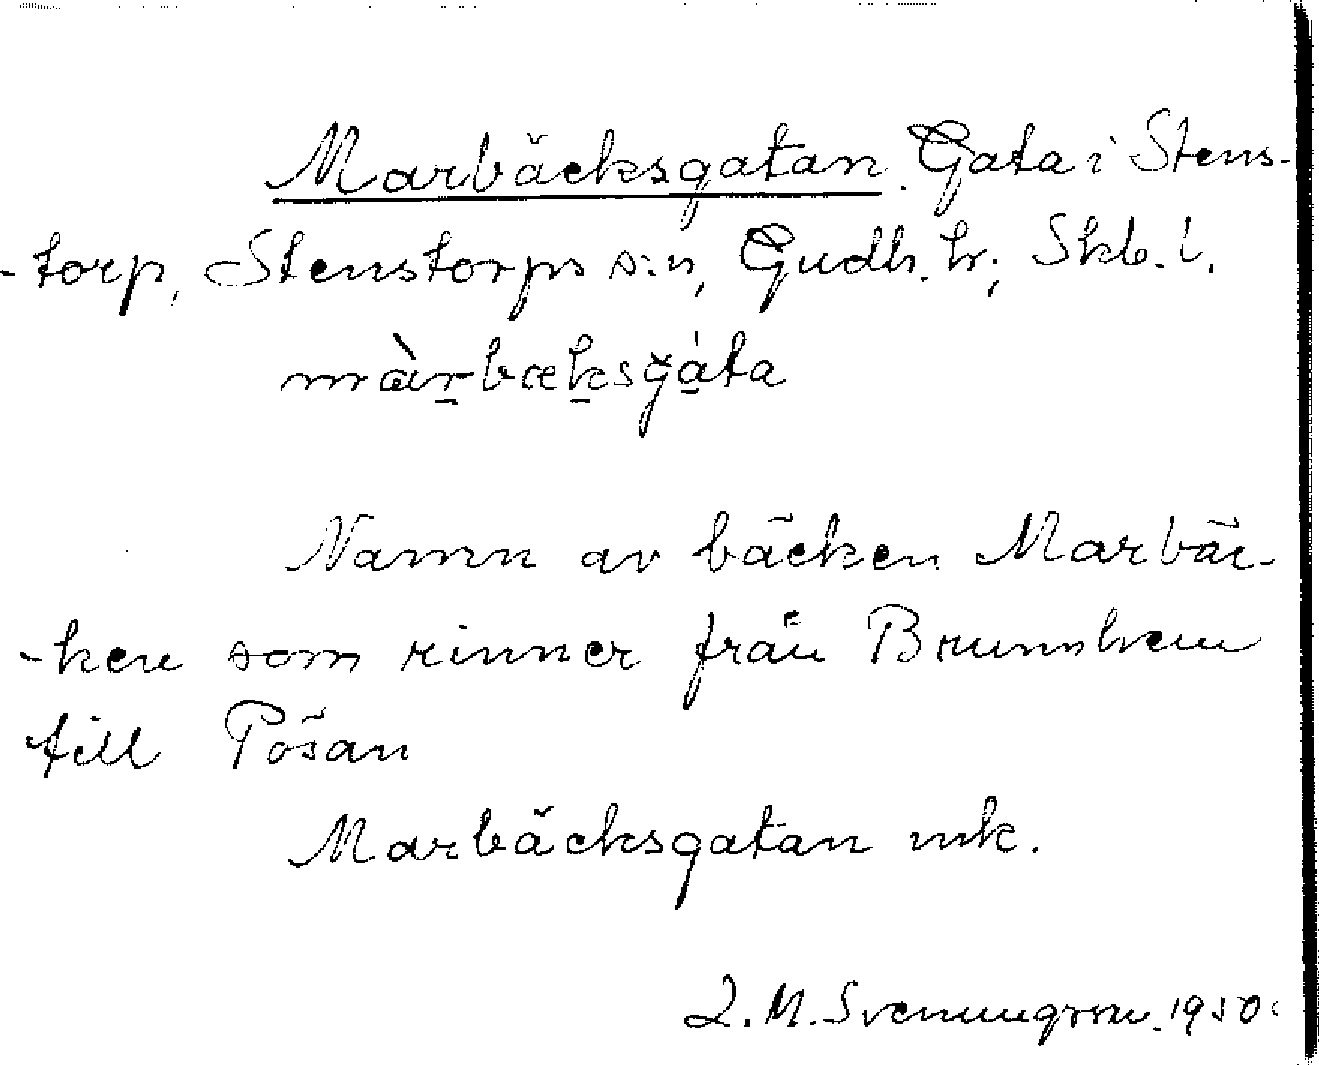 Marbäcksgatan. Gata i Stens-
-torp, Stenstorps s:n, Gudh. hr; Skb. l.
màr̠bæk̠sgá̠ta
Namn av bäcken Marbäc-
-ken som rinner från Brunnhem
till Pösan
Marbäcksgatan mk.
M. Svenungsson 1950.